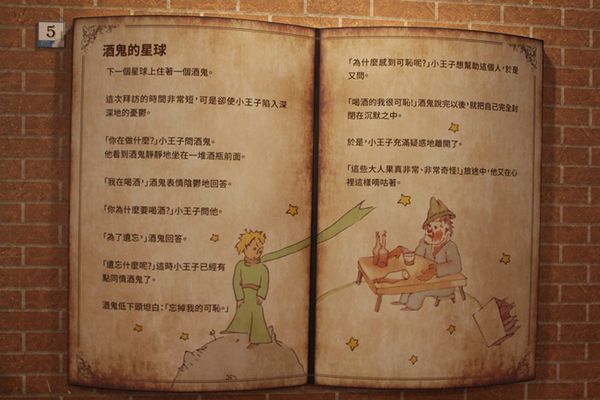 5
酒鬼的星球
下一個星球上住著一個酒鬼。
這次拜訪的時間非常短，可是卻使小王子陷入深
深地的憂鬱。
「你在做什麼？」小王子問酒鬼。
他看到酒鬼靜靜地坐在一堆酒瓶前面。
「我在喝酒，」酒鬼表情陰鬱地回答。
「你為什麼要喝酒？」小王子問他。
「為了遺忘，」酒鬼回答。
「遺忘什麼呢？」這時小王子已經有
點同情酒鬼了。
酒鬼低下頭坦白：「忘掉我的可恥。」
「為什麼感到可恥呢？」小王子想幫助這個人，於是
又問。
「喝酒的我很可恥！」酒鬼說完以後，就把自己完全封
閉在沉默之中。
於是，小王子充滿疑惑地離開了。
「這些大人果真非常、非常奇怪！」旅途中，他又在心
裡這樣嘀咕著。